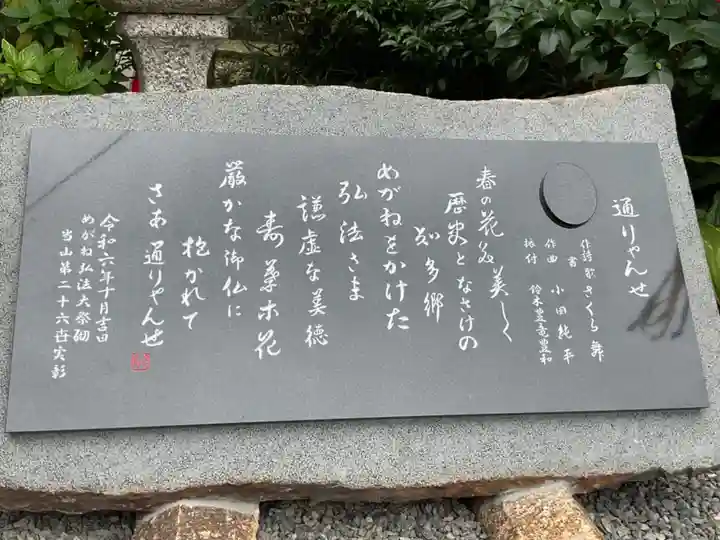 通りゃんせ
作詩 歌 さくら舞
書
作曲 小田純平
振付 鈴木豊竜豊和
春の花も美しく
歴史となさけの
知多郷
めがねをかけた
弘法さま
謙虚な美徳
寿
木花
厳かな御仏に
抱かれて
さあ 通りゃんせ
令和六年十月吉日
めがね弘法大祭
当山第二十六世実彰